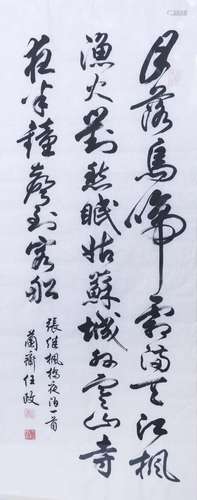 月落烏啼霜滿天江楓
漁火對愁眠姑蘇城外寒山寺
夜半鐘聲到客船
張継楓橋夜泊一首
蘭齋任政